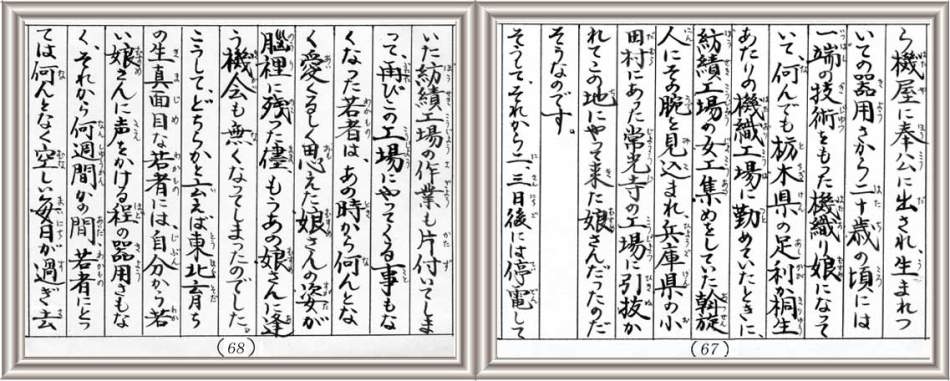 ら機屋に奉公に出され、生まれつ
いての器用さから二十歳の頃には
一端の技術をもった機織り娘になって
いて、何んでも栃木県の足利か桐生
あたりの機織工場に勤めていたときに、
紡績工場の女工集めをしていた斡旋
人にその腕を見込まれ、兵庫県の小
田村にあった常光寺の工場に引抜か
れてこの地にやって来た娘さんだったのだ
そうなのです。
そうして、それから二、三日後には停電して
(67)
いた紡績工場の作業も片付いてしま
って、再びこの工場にやってくる事もな
くなった若者は、あの時から何んとな
く愛くるしく思えた娘さんの姿が
脳裡に残った儘、もうあの娘さんに逢
う機会も無くなってしまったのでした。
こうしてどちらかと云えば東北育ち
の生真面目な若者には、自分から若
い娘さんに声をかける程の器用さもな
く、それから何週間かの間、若者にとっ
ては何んとなく空しい毎日が過ぎ去
(68)